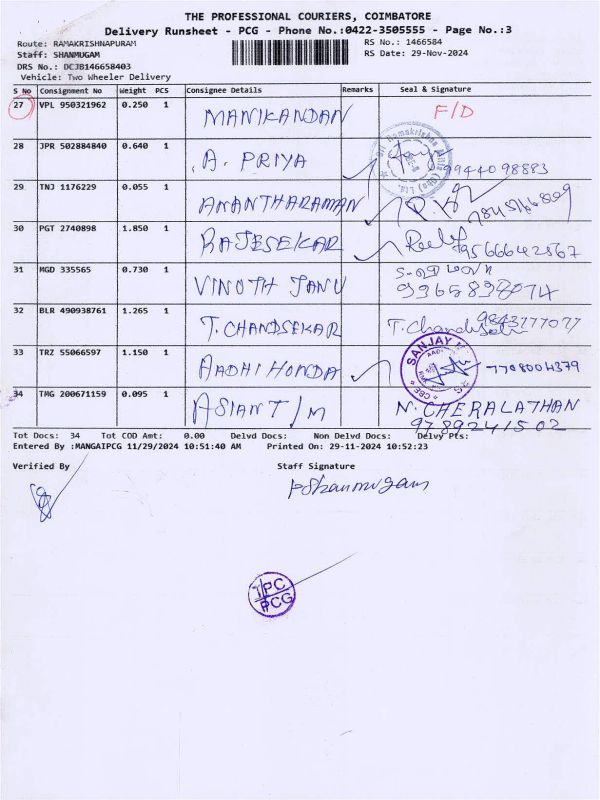 THE PROFESSIONAL COURIERS, COIMBATORE
Delivery Runsheet - PCG - Phone No.:0422-3505555 - Page No.:3
Route: RAMAKRISHNAPURAM RS No.: 1466584
Staff: SHANMUGAM RS Date: 29-Nov-2024
DRS No.: DCJB146658403
Vehicle: Two Wheeler Delivery
S No Consignment No Weight PCS Consignee Details Remarks Seal & Signature
27 VPL 950321962 0.250 1 MANIKANDAN F/D
28 JPR 502884840 0.640 1 A. PRIYA 9944098883
29 TNJ 1176229 0.055 1 ANANTHARAMAN
30 PGT 2740898 1.850 1 RAJESEKAR 9566642567
31 MGD 335565 0.730 1 VINOTH JANU
32 BLR 490938761 1.265 1 T. CHANDSEKAR 9843177077
33 TRZ 55066597 1.150 1 AADHI HONDA SANJAY 7708004379
34 TMG 200671159 0.095 1 ASIANT/M N. CHERALATHAN
9789241502
Tot Docs: 34 Tot COD Amt: 0.00 Delvd Docs: Non Delvd Docs: Delvy Pts:
Entered By :MANGAIPCG 11/29/2024 10:51:40 AM Printed On: 29-11-2024 10:52:23
Verified By Staff Signature
PShanmugam
TPC
PCG